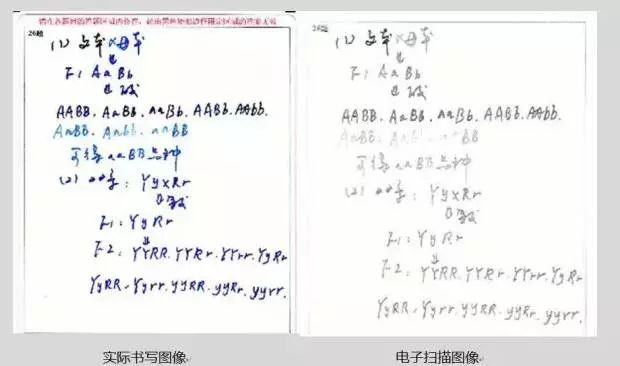 请在各题目的答题区域内作答，超出黑色矩形边框限定区域的答案无效
26题
(1) 父本×母本
↓
F1 AaBb
↓
AABB. AaBB. aaBb. AABb. AAbb.
AaBB. Aabb. aaBB
可得aaBB品种
(2) : YyxRr
F1: YyRr
↓
F2: YYRR. YYRr. YYrr. YyRr
YyRR. Yyrr. yyRR. yyRr. yyrr.
实际书写图像
26题
(1) 父本×母本
↓
F1 AaBb
↓
AABB. AaBB. aaBb. AABb. AAbb.
AaBB. Aabb. aaBB
可得aaBB品种
(2) : YyxRr
F1: YyRr
↓
F2: YYRR. YYRr. YYrr. YyRr
YyRR. Yyrr. yyRR. yyRr. yyrr.
电子扫描图像